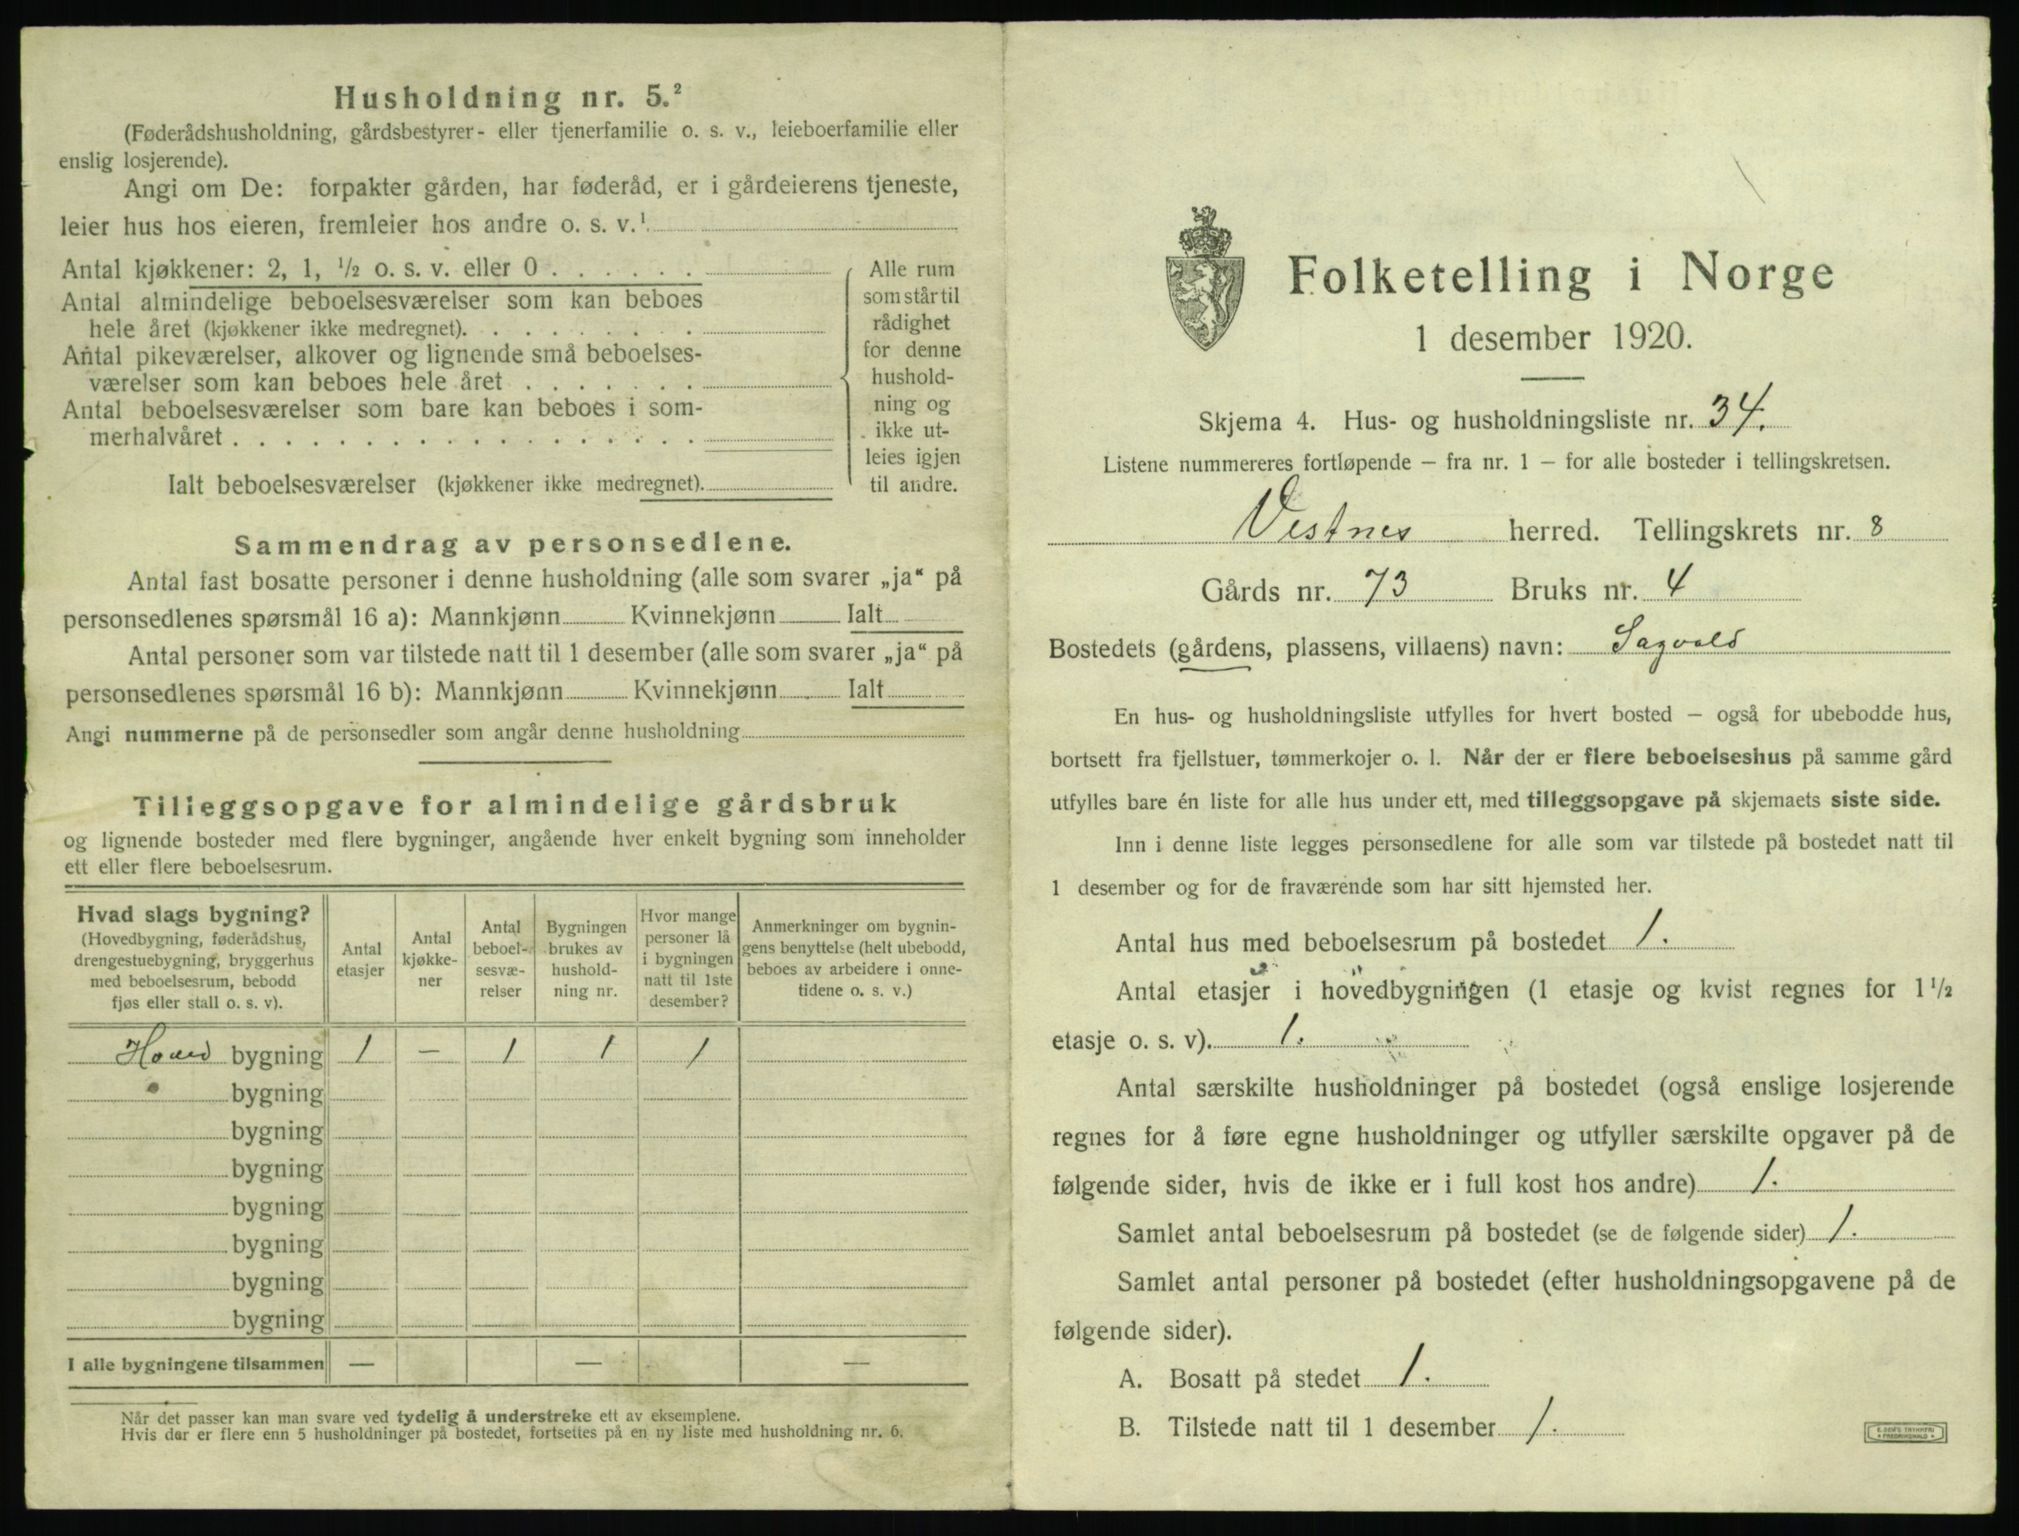 Husholdning nr. 5.²
(Føderådshusholdning, gårdsbestyrer- eller tjenerfamilie o. s. v., leieboerfamilie eller
enslig losjerende).
Angi om De: forpakter gården, har føderåd, er i gårdeierens tjeneste,
leier hus hos eieren, fremleier hos andre o. s. v.¹
Antal kjøkkener: 2, 1, ½ o. s. v. eller 0 . . . . . .
Antal almindelige beboelsesværelser som kan beboes
hele året (kjøkkener ikke medregnet). . . . . . . . .
Antal pikeværelser, alkover og lignende små beboelses-
værelser som kan beboes hele året . . . . . . .
Antal beboelsesværelser som bare kan beboes i som-
merhalvåret . . . . . . . . . . . . . . . . . .
Ialt beboelsesværelser (kjøkkener ikke medregnet).
Alle rum
som står til
rådighet
for denne
hushold-
ning og
ikke ut-
leies igjen
til andre.
Sammendrag av personsedlene.
Antal fast bosatte personer i denne husholdning (alle som svarer „ja“ på
personsedlenes spørsmål 16 a): Mannkjønn Kvinnekjønn Ialt
Antal personer som var tilstede natt til 1 desember (alle som svarer „ja“ på
personsedlenes spørsmål 16 b): Mannkjønn Kvinnekjønn Ialt
Angi nummerne på de personsedler som angår denne husholdning
Tilleggsopgave for almindelige gårdsbruk
og lignende bosteder med flere bygninger, angående hver enkelt bygning som inneholder
ett eller flere beboelsesrum.
Hvad slags bygning?
(Hovedbygning, føderådshus,
drengestuebygning, bryggerhus
med beboelsesrum, bebodd
fjøs eller stall o. s. v).
Antal
etasjer
Antal
kjøkke-
ner
Antal
beboel-
sesvæ-
relser
Bygningen
brukes av
hushold-
ning nr.
Hvor mange
personer lå
i bygningen
natt til 1ste
desember?
Anmerkninger om bygnin-
gens benyttelse (helt ubebodd,
beboes av arbeidere i onne-
tidene o. s. v.)
Hoved bygning 1 — 1 1 1
bygning
bygning
bygning
bygning
bygning
bygning
bygning
I alle bygningene tilsammen — — —
Når det passer kan man svare ved tydelig å understreke ett av eksemplene.
Hvis der er flere enn 5 husholdninger på bostedet, fortsettes på en ny liste med husholdning nr. 6.
Folketelling i Norge
1 desember 1920.
Skjema 4. Hus- og husholdningsliste nr. 34.
Listene nummereres fortløpende – fra nr. 1 – for alle bosteder i tellingskretsen.
Vestnes herred. Tellingskrets nr. 8
Gårds nr. 73 Bruks nr. 4
Bostedets (gårdens, plassens, villaens) navn: Sagvold
En hus- og husholdningsliste utfylles for hvert bosted – også for ubebodde hus,
bortsett fra fjellstuer, tømmerkojer o. l. Når der er flere beboelseshus på samme gård
utfylles bare én liste for alle hus under ett, med tilleggsopgave på skjemaets siste side.
Inn i denne liste legges personsedlene for alle som var tilstede på bostedet natt til
1 desember og for de fraværende som har sitt hjemsted her.
Antal hus med beboelsesrum på bostedet 1.
Antal etasjer i hovedbygningen (1 etasje og kvist regnes for 1 ½
etasje o. s. v). 1.
Antal særskilte husholdninger på bostedet (også enslige losjerende
regnes for å føre egne husholdninger og utfyller særskilte opgaver på de
følgende sider, hvis de ikke er i full kost hos andre) 1.
Samlet antal beboelsesrum på bostedet (se de følgende sider) 1.
Samlet antal personer på bostedet (efter husholdningsopgavene på de
følgende sider).
A. Bosatt på stedet 1.
B. Tilstede natt til 1 desember 1.